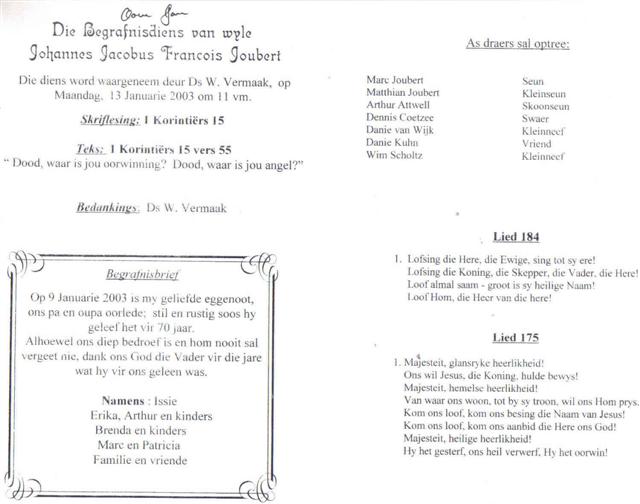 Oom Jan
Die Begrafnisdiens van wyle
Johannes Jacobus Francois Joubert
Die diens word waargeneem deur Ds W. Vermaak, op
Maandag, 13 Januarie 2003 om 11 vm.
Skriflesing: 1 Korintiërs 15
Teks: 1 Korintiërs 15 vers 55
“ Dood, waar is jou oorwinning? Dood, waar is jou angel?”
Bedankings: Ds W. Vermaak
Begrafnisbrief
Op 9 Januarie 2003 is my geliefde eggenoot,
ons pa en oupa oorlede; stil en rustig soos hy
geleef het vir 70 jaar.
Alhoewel ons diep bedroef is en hom nooit sal
vergeet nie, dank ons God die Vader vir die jare
wat hy vir ons geleen was.
Namens : Issie
Erika, Arthur en kinders
Brenda en kinders
Marc en Patricia
Familie en vriende
As draers sal optree:
Marc Joubert Seun
Matthian Joubert Kleinseun
Arthur Attwell Skoonseun
Dennis Coetzee Swaer
Danie van Wijk Kleinneef
Danie Kuhn Vriend
Wim Scholtz Kleinneef
Lied 184
1. Lofsing die Here, die Ewige, sing tot sy ere!
Lofsing die Koning, die Skepper, die Vader, die Here!
Loof almal saam - groot is sy heilige Naam!
Loof Hom, die Heer van die here!
Lied 175
1. Majesteit, glansryke heerlikheid!
Ons wil Jesus, die Koning, hulde bewys!
Majesteit, hemelse heerlikheid!
Van waar ons woon, tot by sy troon, wil ons Hom prys.
Kom ons loof, kom ons besing die Naam van Jesus!
Kom ons loof, kom ons aanbid die Here ons God!
Majesteit, heilige heerlikheid!
Hy het gesterf, ons heil verwerf, Hy het oorwin!